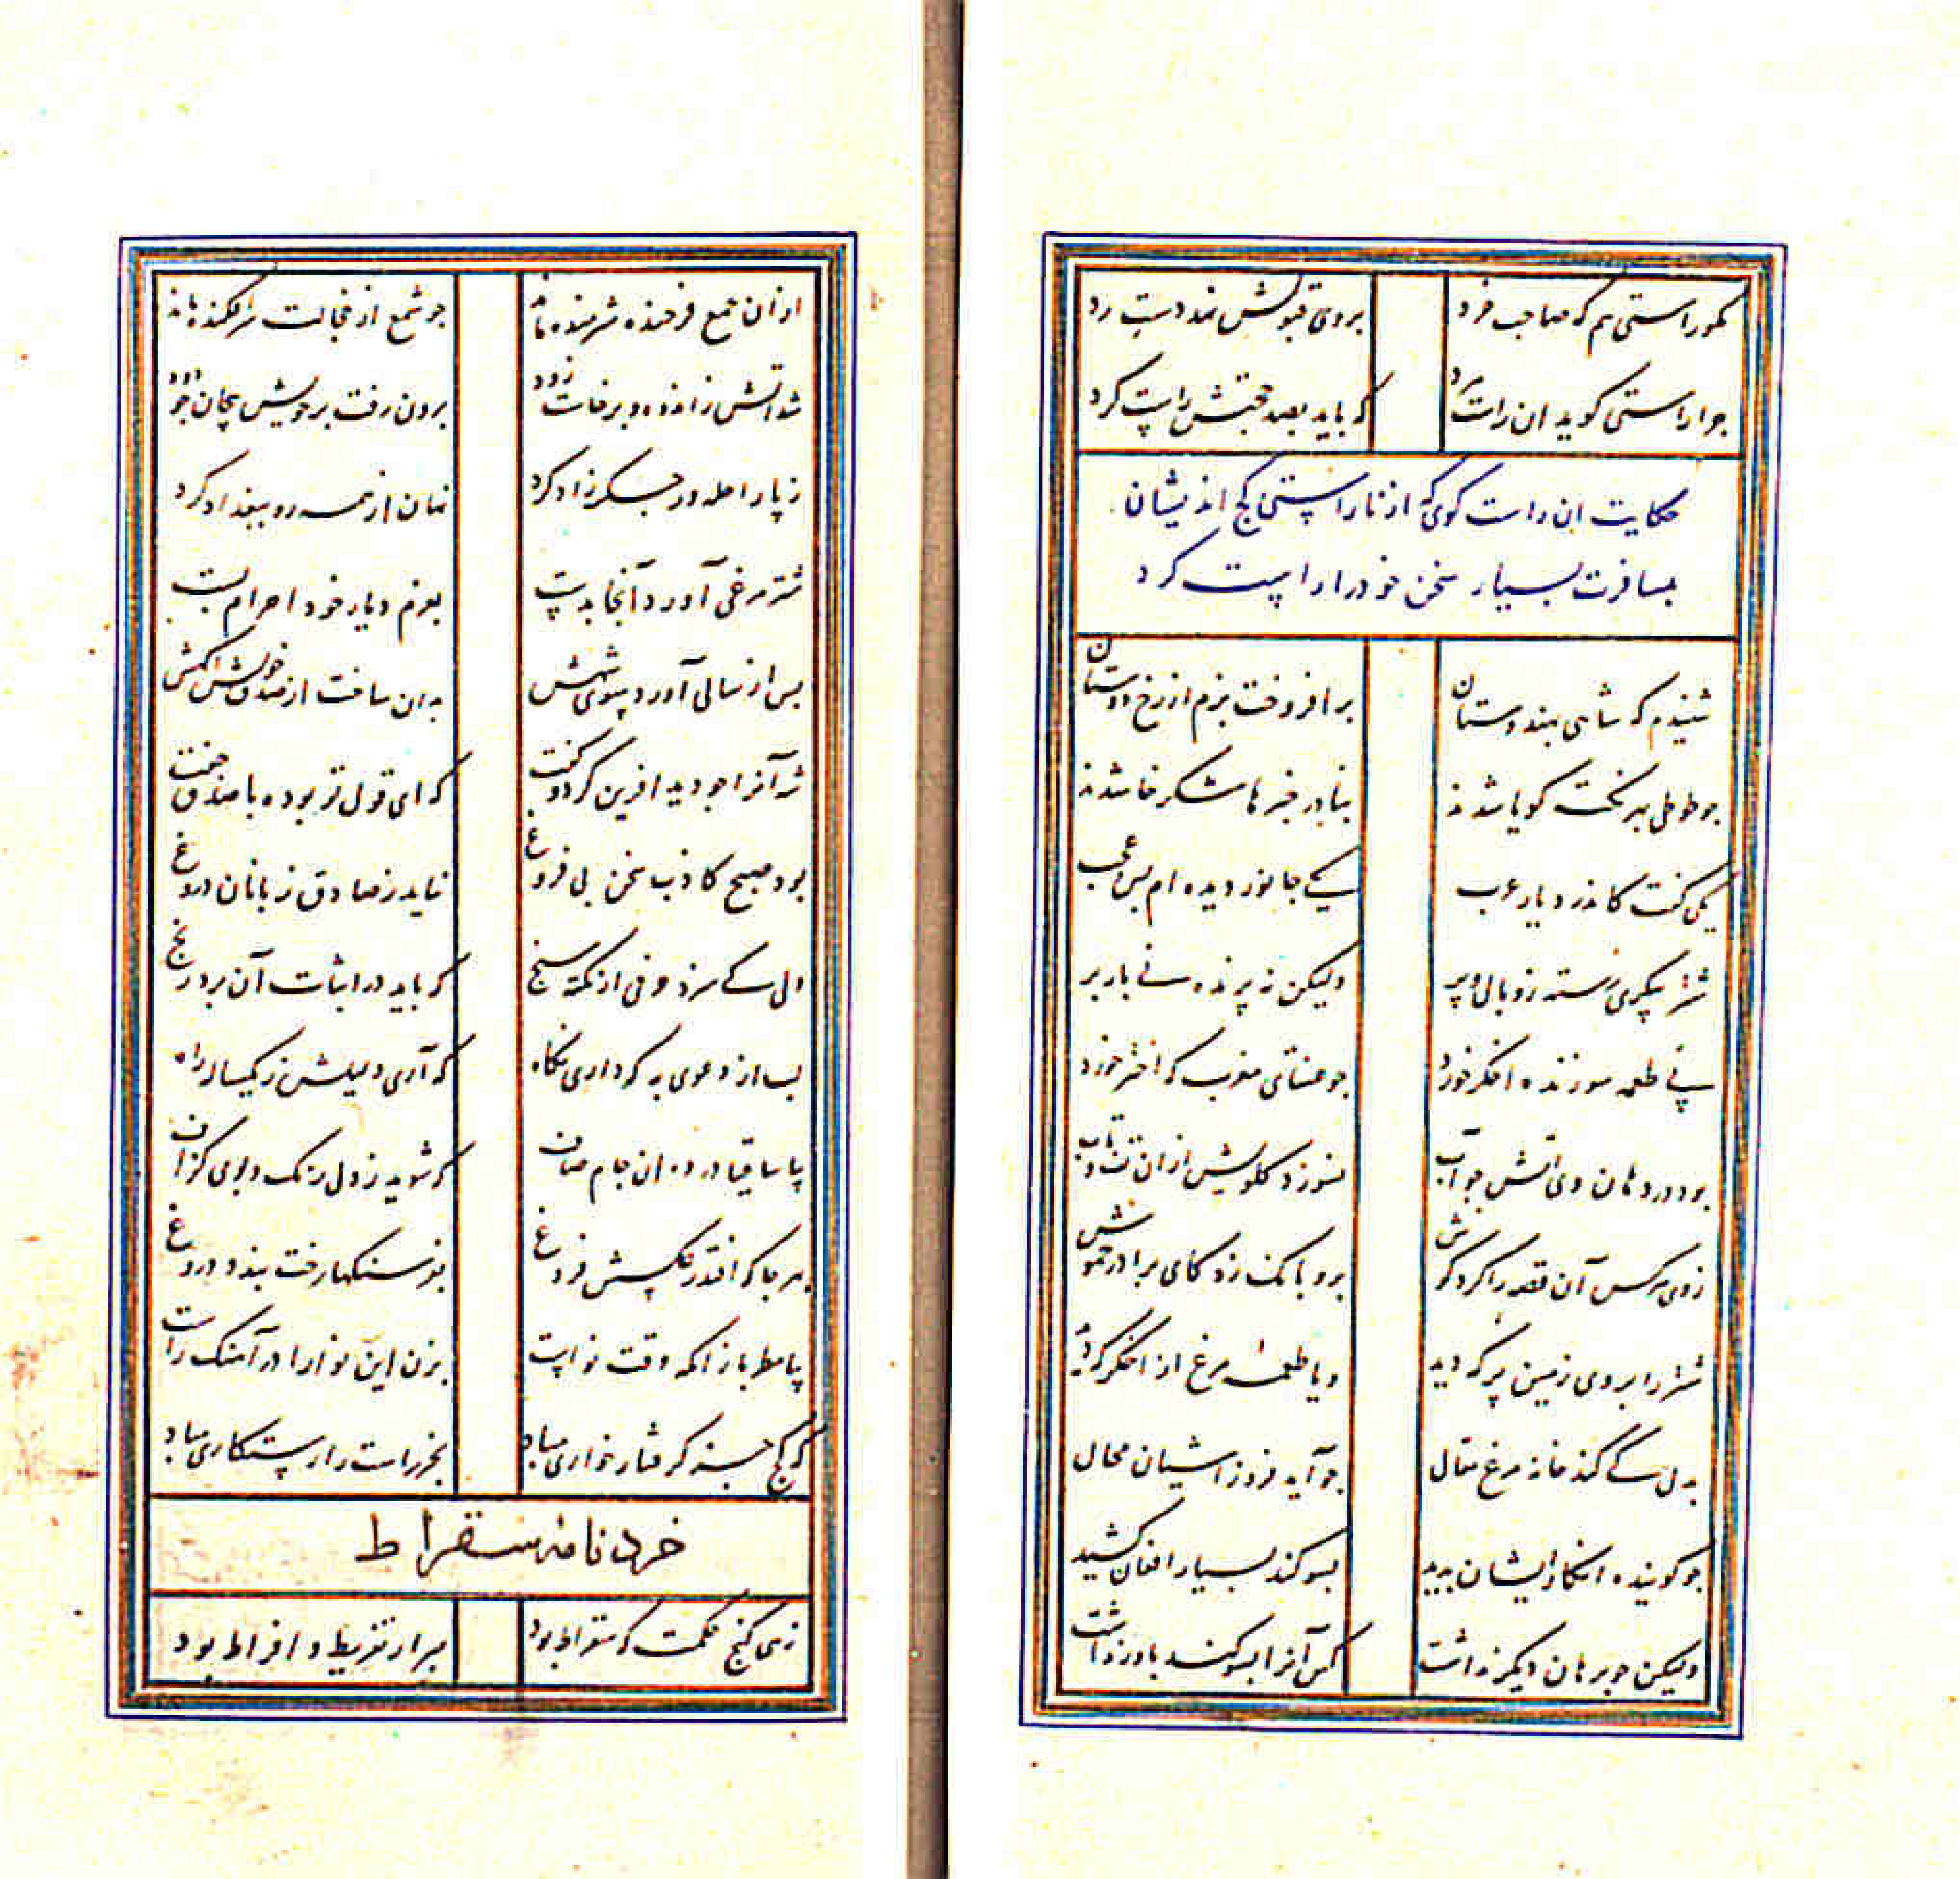 مگو راستی هم که صاحب خرد
بروی قبولش نهد دست رد
چرا راستی گوید آن راست مرد
که باید بصد حجتش راست کرد
حکایت آن راست گوی که از ناراستی کج اندیشان
بمسافرت بسیار سخن خود را راست کرد
شنیدم که شاهی بهندوستان
برافروخت بزم از رخ دوستان
چو طوطی بهر نکته گویا شدند
بنادر خبرها شکرخا شدند
یکی گفت کاندر دیار عرب
یکی جانور دیده‌ام بس عجب
شتر پیکری رسته زو بال و پر
ولیکن نه پرنده نی باربر
پی طعمه سوزنده اخگر خورد
چو عنقای مغرب که اختر خورد
بود در دهان وی آتش چو آب
نسوزد گلویش از آن تف و تاب
زوی هرکس آن قصه را کرد گوش
برو بانگ زد کای برادر خموش
شتر را بروی زمین پر که دید
و یا طعمهٔ مرغ از اخگر که دید
به دل کی کند خانه مرغ مقال
چو آید فرود ز آشیان محال
چو گوینده انکار ایشان بدید
بسوگند بسیار افغان کشید
ولیکن چو برهان دیگر نداشت
کس آنرا بسوگند باور نداشت
از آن جمع فرخنده شرمنده ماند
چو شمع از خجالت سرافکنده ماند
شد آتش زانده و برخاست زود
برون رفت بر خویش پیچان چو دود
ز پا راحله در جگر زاد کرد
نهان از همه رو ببغداد کرد
شتر مرغی آورد آنجا بدست
بعزم دیار خود احرام بست
پس از سالی آورد سوی شهش
بدان ساخت از صدق خویش آگهش
شه آنرا چو دید آفرین کرد و گفت
که ای قول تو بوده با صدق جفت
بود صبح کاذب سخن بی فروغ
نیاید ز صادق زبانان دروغ
ولی کی سزد حرفی از نکته سنج
که باید در اثبات آن برد رنج
لب از دعوی به که داری نگاه
که آری دلیلش ز یکساله راه
بیا ساقیا در ده آن جام صاف
که شوید ز دل رنگ و بوی گزاف
بهر جا که افتد ز عکسش فروغ
بفرسنگها رخت بندد دروغ
بیا مطربا زانکه وقت نواست
بزن این نوا را در آهنگ راست
که کج جز گرفتار خواری مباد
بجز راست را رستگاری مباد
خردنامهٔ سقراط
زهی گنج حکمت که سقراط بود
مبرا ز تفریط و افراط بود